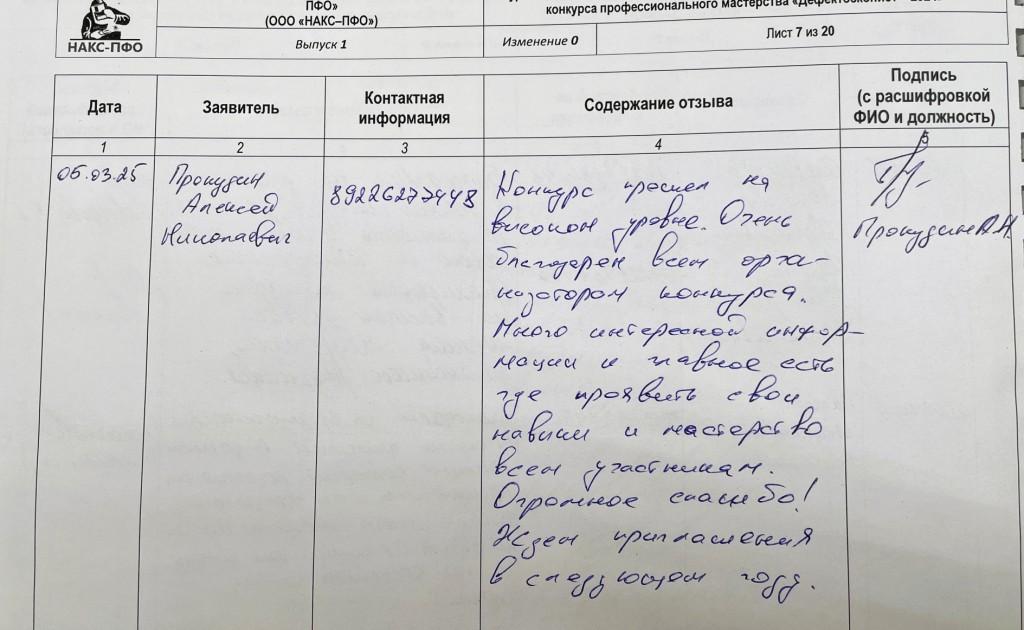 ПФО»
(ООО «НАКС–ПФО»)
конкурса профессионального мастерства «Дефектоскопист
НАКС-ПФО
Выпуск 1
Изменение 0
Лист 7 из 20
Дата
Заявитель
Контактная
информация
Содержание отзыва
Подпись
(с расшифровкой
ФИО и должность)
1
2
3
4
5
05.03.25
Прокудин
Алексей
Николаевич
89226277448
Конкурс прошел на
высоком уровне. Очень
благодарен всем орга-
низаторам конкурса.
Много интересной инфор-
мации и главное есть
где проявить свои
навыки и мастерство
всем участникам.
Огромное спасибо!
Ждем приглашения
в следующем году.
Прокудин А.Н.